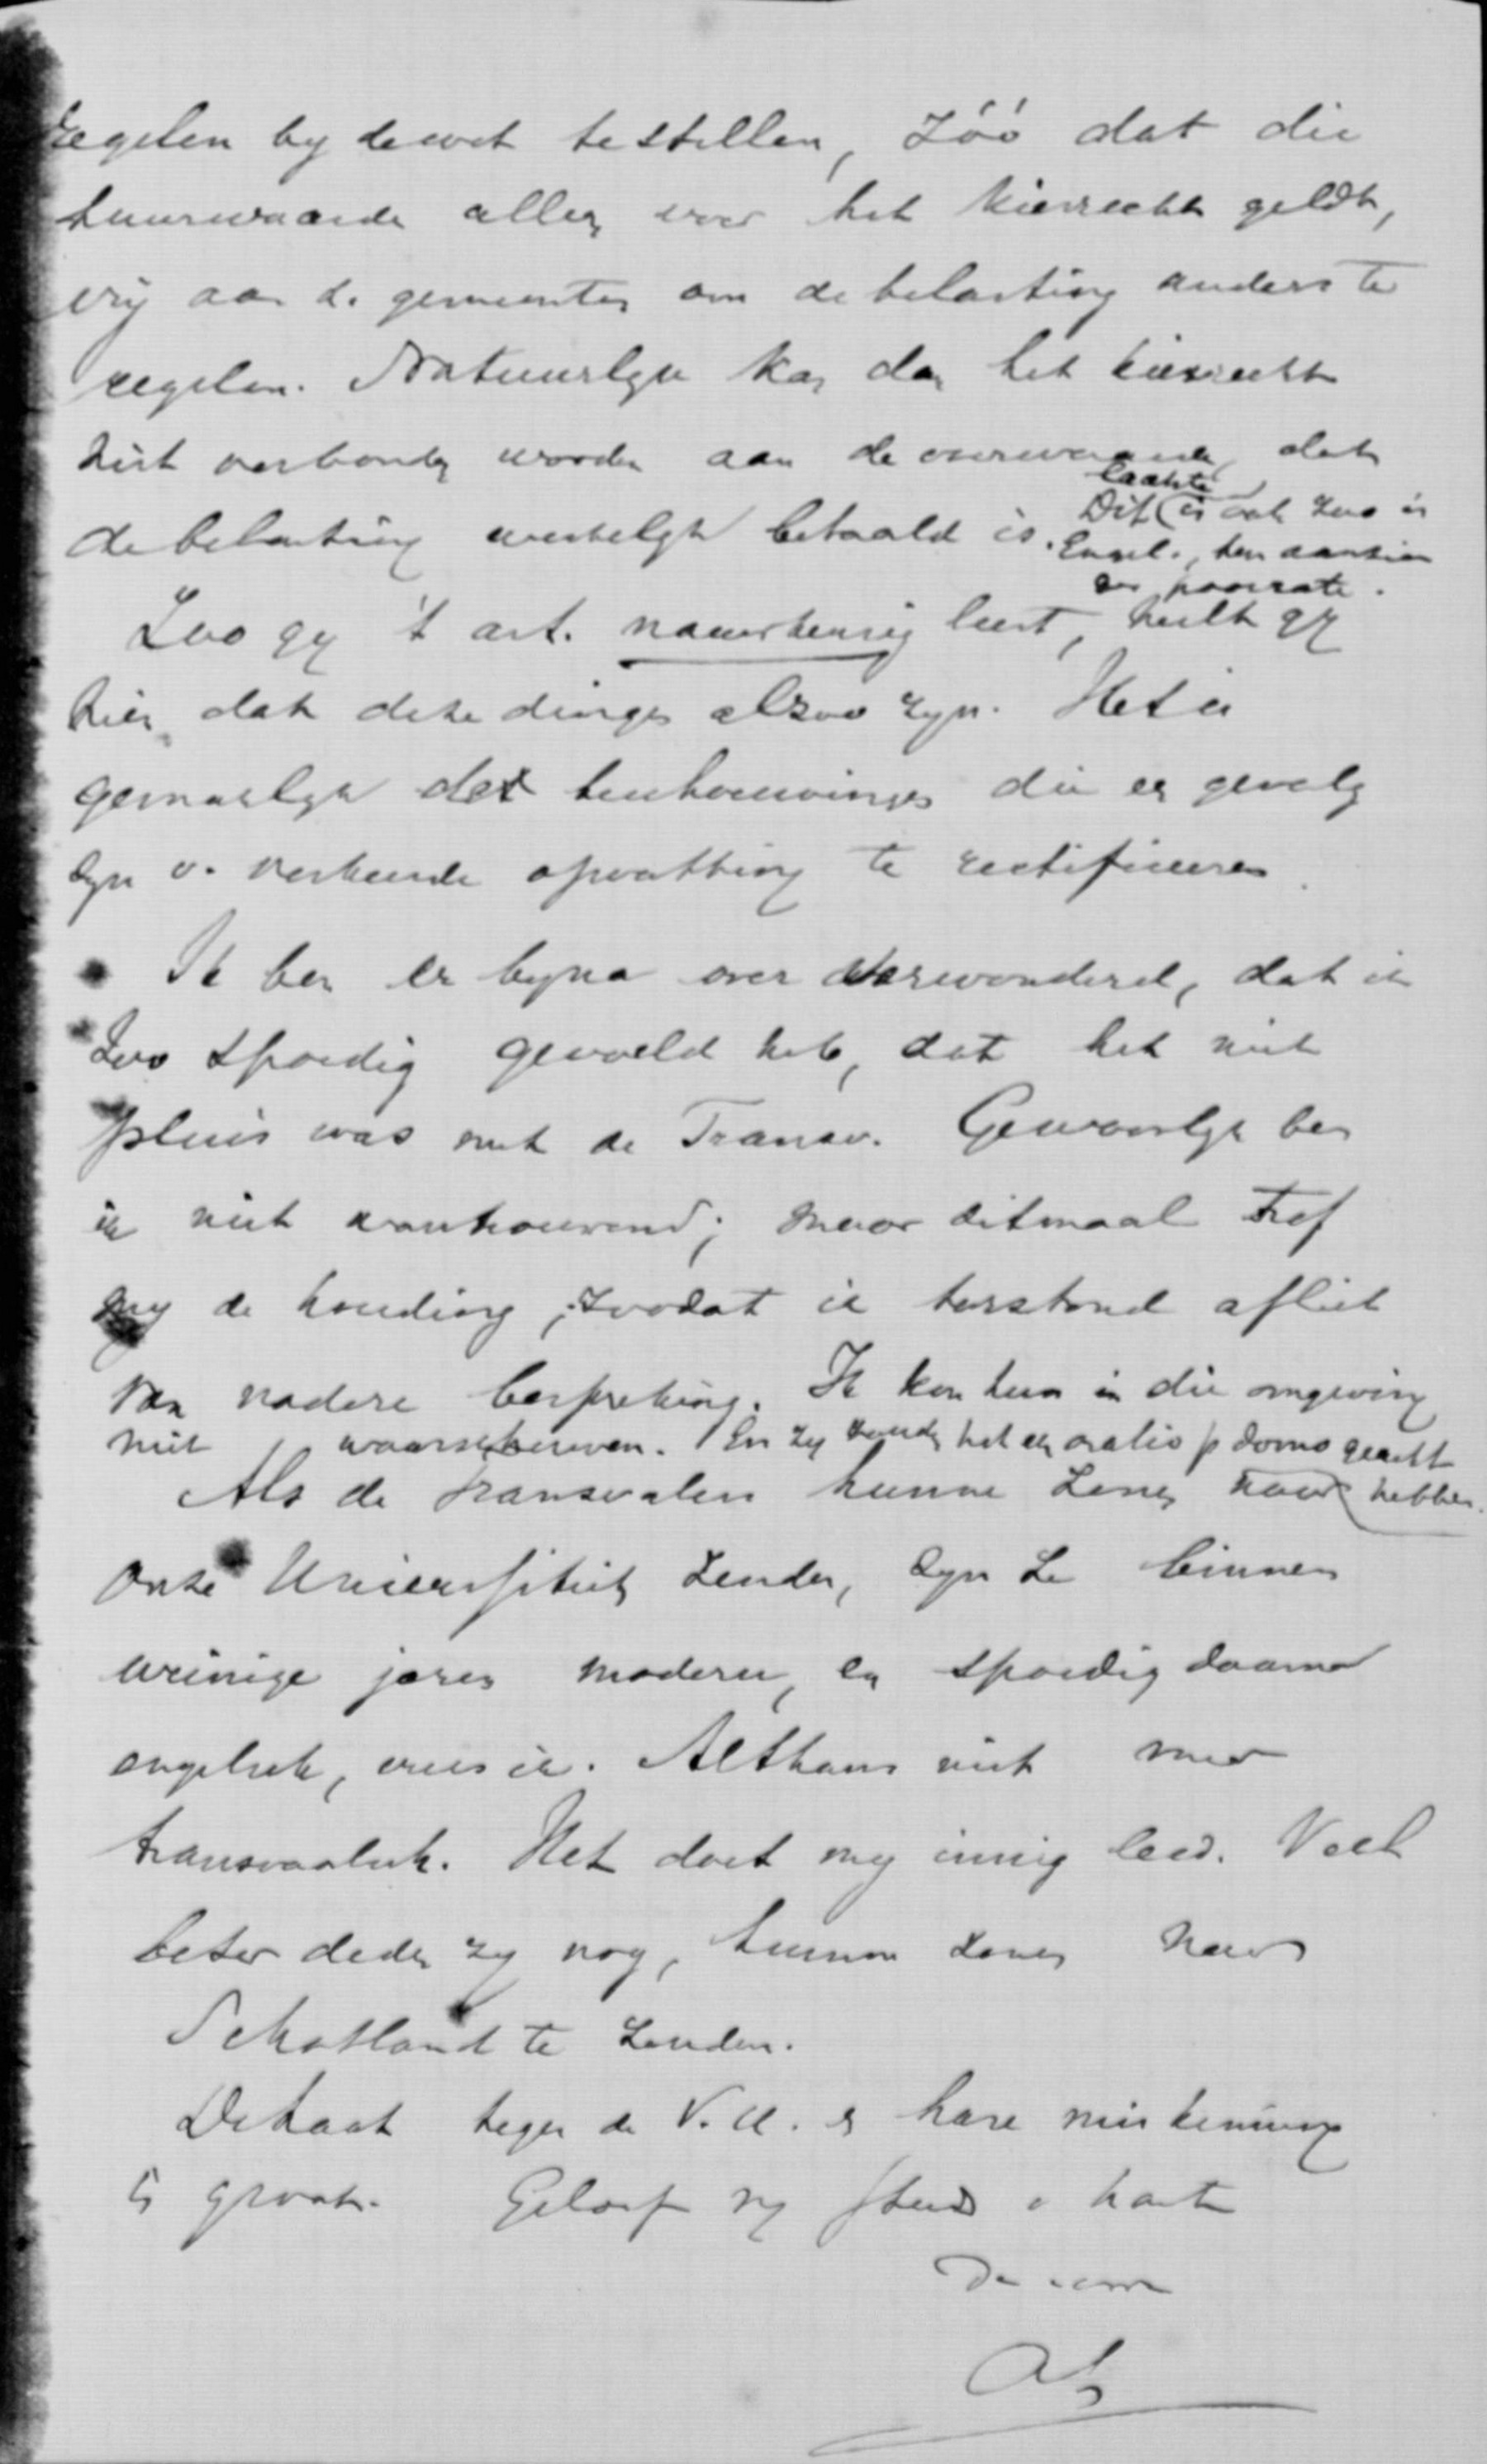 regelen by de wet te stellen, zóó dat die
huurwaarde alleen voor het kiesrecht geldt,
vry aan de gemeenten om de belasting anders te
regelen. Natuurlyk kan dan het kiesrecht
niet verbonden worden aan de voorwaarde, dat
de belasting werkelyk betaald is. Dit laatste is ook zoo in
Engel., ten aanzien
der poorrate.
Zoo gy 't art. nauwkeurig leest, zult gy
zien dat deze dingen alzoo zyn. Het is
gemakkelyk de beschouwingen die er gevolg
zyn v. verkeerde opvatting te rectificeeren.
Ik ben er byna over verwonderd, dat ik
zoo spoedig gevoeld heb, dat het niet
pluis was met de Transv. Gewoonlyk ben
ik niet wantrouwend; maar ditmaal trof
my de houding, zoodat ik terstond afliet
van nadere bespreking. Ik kon hen in die omgeving
niet waarschuwen. En zy zouden het een oratio p domo geacht
hebben.
Als de Transvalers hunne zonen naar
onze Universiteit zenden, zyn ze binnen
weinige jaren modern, en spoedig daarna
engelsch, vrees ik. Althans niet meer
transvaalsch. Het doet my innig leed. Veel
beter deden zy nog, hunne zonen naar
Schotland te zenden.
De haat tegen de V. U. en hare miskenning
is groot. Geloof my steeds v harte